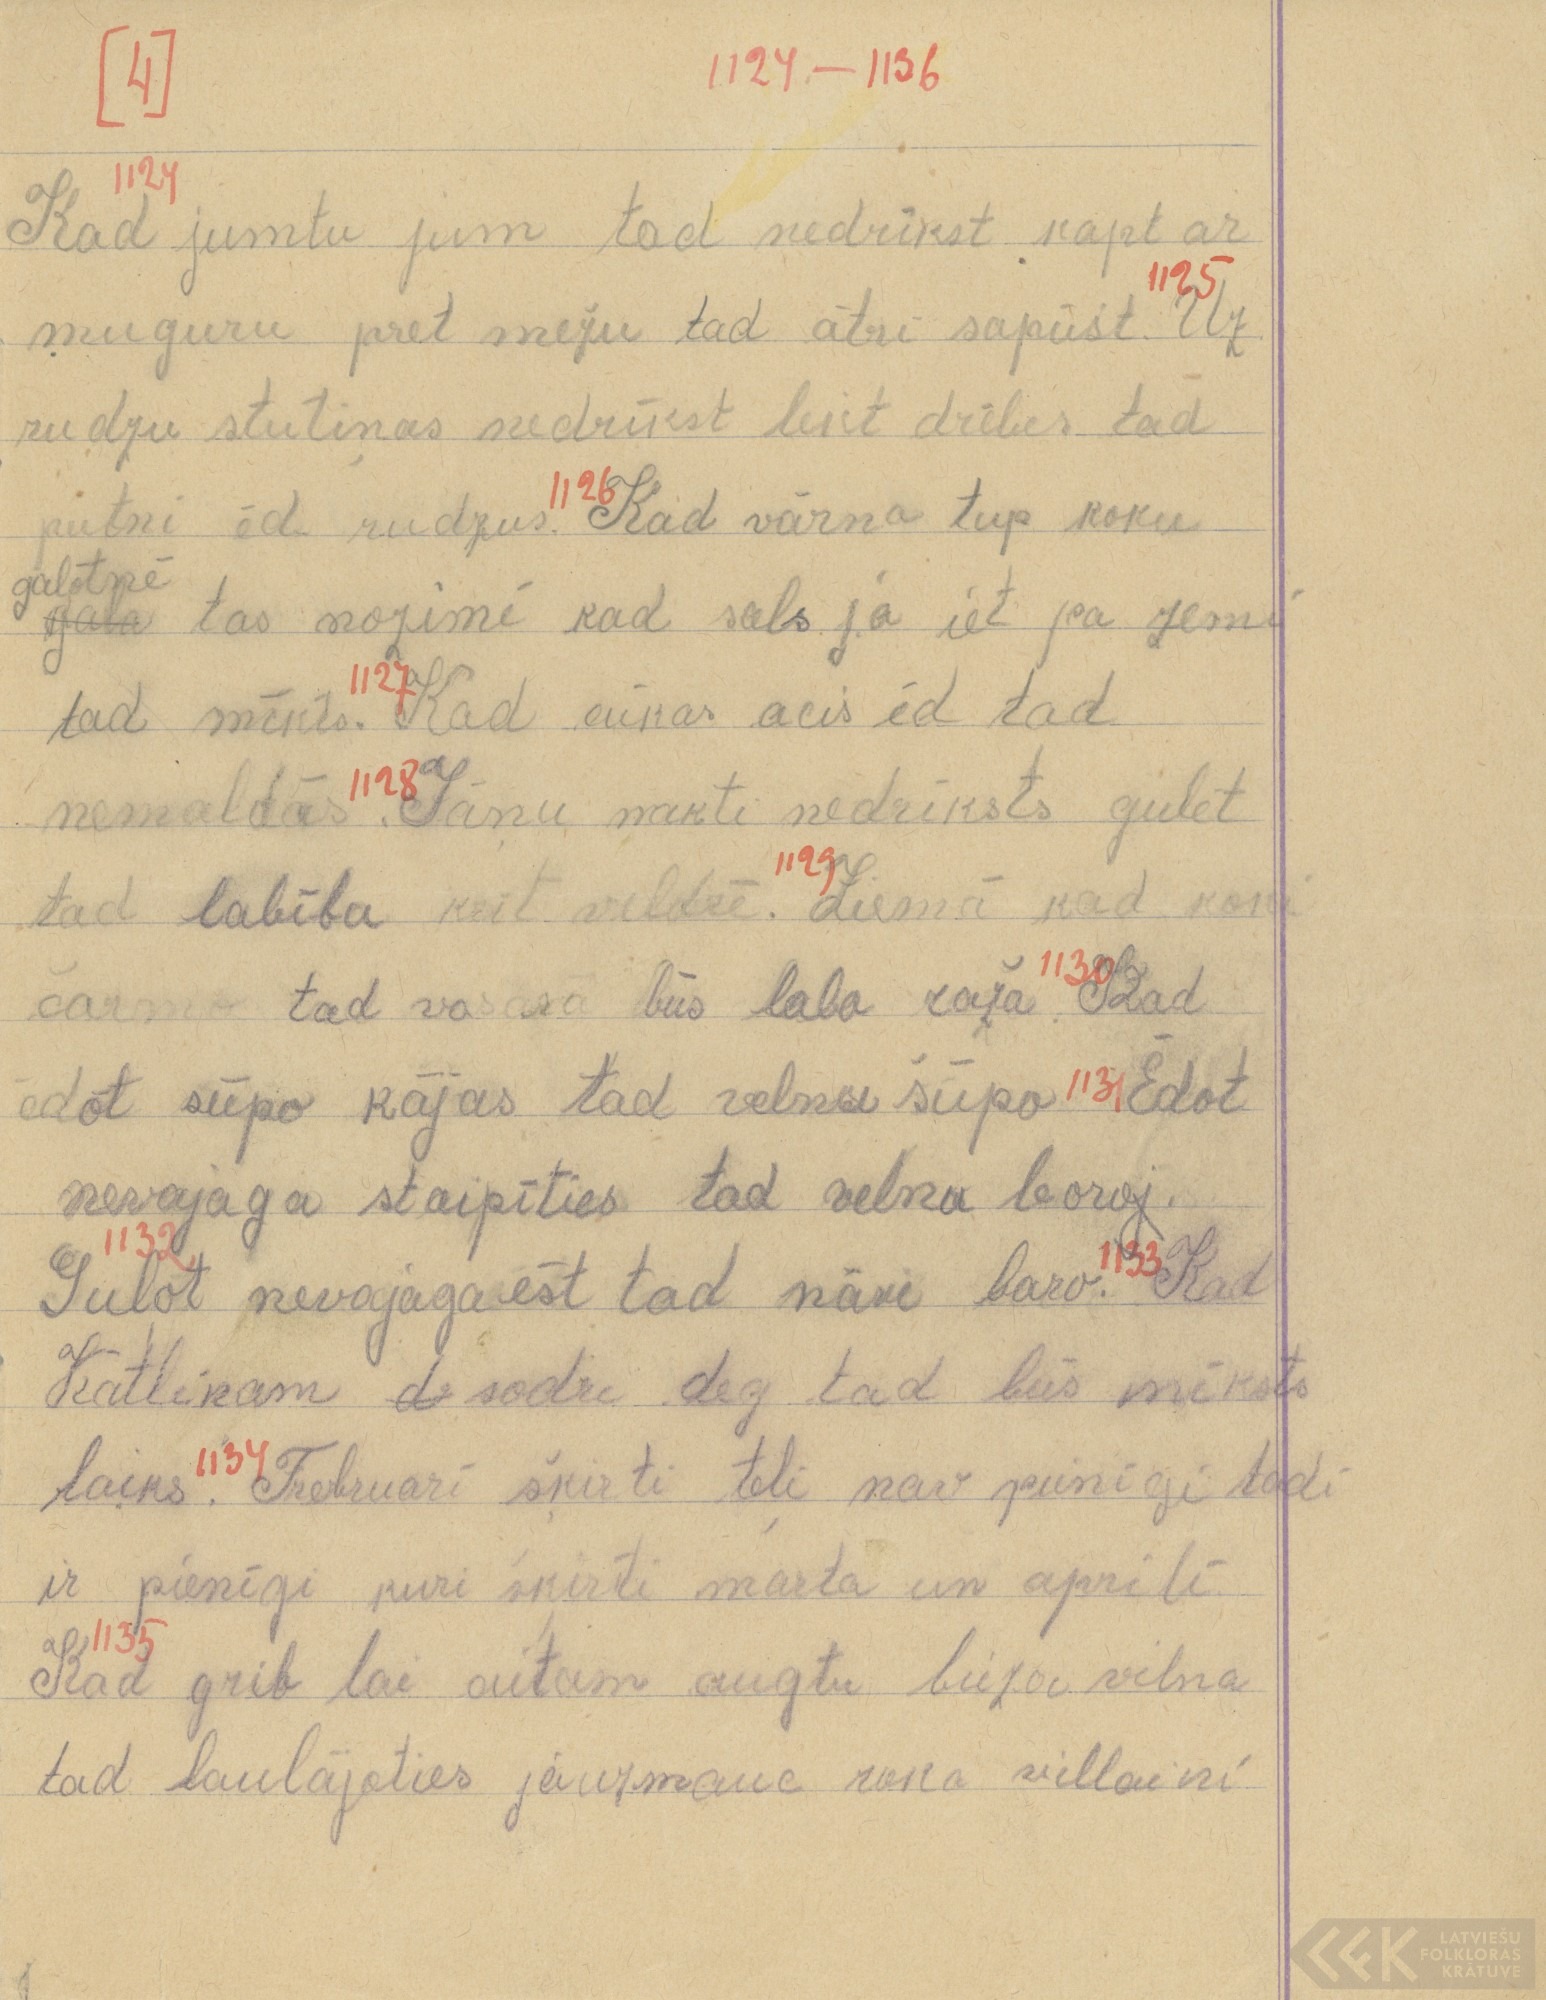 [4] 1124 — 1136
1124
Kad jumtu jum tad nedrīkst kapt ar
1125
muguru pret mežu tad ātri sapūst. Uz
rudzu stutiņas nedrīkst likt drēbes tad
1126
putni ēd rudzus. Kad vārna tup koku
galotnē
gala tas nozīmē kad sals jā iet pa zemi
1127
tad mīksts. Kad cūkas acis ēd tad
1128
nemaldās. Jāņu nakti nedrīksts gulēt
1129
tad labība krīt veldrē. Ziemā kad koki
1130
čarmo tad vasarā būs laba raža. Kad
1131
ēdot sūpo kājas tad velnu šūpo Ēdot
nevajaga staipīties tad velna boroj.
1132 1133
Gulot nevajaga ēst tad nāvi baro. Kad
Katlikam de sodri deg tad būs mīksts
1134
laiks. Februarī šķirti teļi nav pienīgi tādi
ir pienīgi kuri šķirti marta un aprilī.
1135
Kad grib lai aitam augtu bieza vilna
tad laulājoties jāuzmauc roka villaini
LATVIEŠU
FOLKLORAS
KRĀTUVE